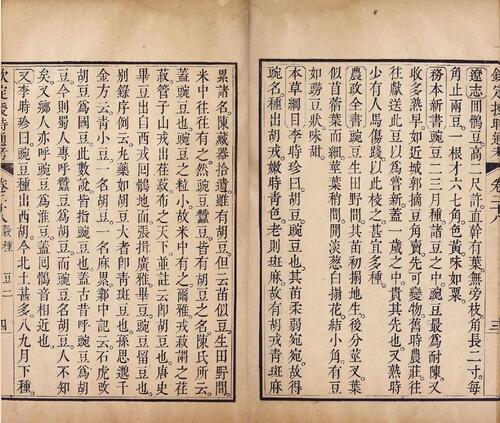 遼志回鶻豆高二尺許直幹有葉無旁枝角長二寸每
角止兩豆一根才六七角色黃味如粟
務本新書豌豆二三月種諸豆之中豌豆最爲耐陳又
收多熟早如近城郭摘豆角賣先可變物舊時農莊往
往獻送此豆以爲嘗新蓋一歲之中貴其先也又熟時
少有人馬傷踐以此校之甚宜多種
農政全書豌豆生田野間其苗初搨地生後分莖叉葉
似苜蓿葉而細莖葉稍間開淡葱白搨花結小角有豆
如䝁豆狀味甜
本草綱目李時珍曰胡豆豌豆也其苗柔弱宛宛故得
豌名種出胡戎嫩時靑色老則斑麻故有胡戎靑斑麻
欽定授時通考 卷二十八 穀種 豆二 四
累諸名陳藏器拾遺雖有胡豆但云苗似豆生田野間
米中往往有之然豌豆蠶豆皆有胡豆之名陳氏所云
蓋豌豆也豌豆之粒小故米中有之爾雅戎菽謂之荏
菽管子山戎出荏菽布之天下並註云卽胡豆也唐史
畢豆出自西戎回鶻地面張揖廣雅畢豆豌豆留豆也
別錄序例云九藥如胡豆大者卽靑斑豆也孫思邈千
金方云靑小豆一名胡豆一名麻累鄴中記云石虎改
胡豆爲國豆此數說皆指豌豆也蓋古昔呼豌豆爲胡
豆今則蜀人專呼蠶豆爲胡豆而豌豆名胡豆人不知
矣又鄉人亦呼豌豆爲淮豆蓋回鶻音相近也
又李時珍曰豌豆種出西胡今北土甚多八九月下種